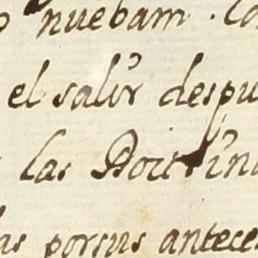 nuebam. Co
el salir despu
las Doctrina
as porsus antece